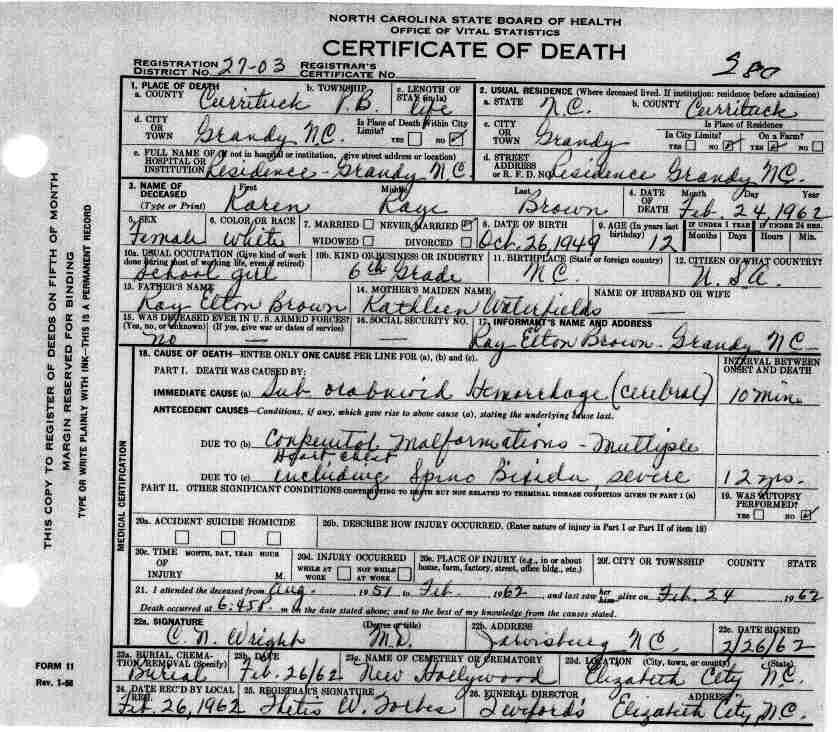 NORTH CAROLINA STATE BOARD OF HEALTH
OFFICE OF VITAL STATISTICS
CERTIFICATE OF DEATH
REGISTRATION DISTRICT NO. 27-03 REGISTRAR'S CERTIFICATE NO. 280
1. PLACE OF DEATH
a. COUNTY Currituck b. TOWNSHIP P.B. c. LENGTH OF STAY (in 1a) life
2. USUAL RESIDENCE (Where deceased lived. If institution: residence before admission)
a. STATE N.C. b. COUNTY Currituck
d. CITY OR TOWN Grandy N.C. Is Place of Death Within City Limits? YES NO
c. CITY OR TOWN Grandy Is Place of Residence In City Limits? YES NO On a Farm? YES NO
e. FULL NAME OF (If not in hospital or institution, give street address or location) HOSPITAL OR INSTITUTION Residence - Grandy N.C.
d. STREET ADDRESS OR R. F. D. NO. Residence Grandy N.C.
3. NAME OF DECEASED (Type or Print) First Karen Middle Kaye Last Brown
4. DATE OF DEATH Month Day Year Feb. 24, 1962
5. SEX Female
6. COLOR OR RACE White
7. MARRIED NEVER MARRIED WIDOWED DIVORCED
8. DATE OF BIRTH Oct. 26, 1949
9. AGE (In years last birthday) 12 IF UNDER 1 YEAR Months Days IF UNDER 24 HRS. Hours Min.
10a. USUAL OCCUPATION (Give kind of work done during most of working life, even if retired) School girl
10b. KIND OF BUSINESS OR INDUSTRY 6th Grade
11. BIRTHPLACE (State or foreign country) N.C.
12. CITIZEN OF WHAT COUNTRY? U.S.A.
13. FATHER'S NAME Ray Elton Brown
14. MOTHER'S MAIDEN NAME Kathleen Waterfields
NAME OF HUSBAND OR WIFE —
15. WAS DECEASED EVER IN U. S. ARMED FORCES? (Yes, no, or unknown) (If yes, give war or dates of service) No —
16. SOCIAL SECURITY NO. —
17. INFORMANT'S NAME AND ADDRESS Ray Elton Brown - Grandy N.C.
18. CAUSE OF DEATH—ENTER ONLY ONE CAUSE PER LINE FOR (a), (b) and (c).
INTERVAL BETWEEN ONSET AND DEATH
PART I. DEATH WAS CAUSED BY:
IMMEDIATE CAUSE (a) Sub Hemorrhage (cerebral) 10 min
ANTECEDENT CAUSES—Conditions, if any, which gave rise to above cause (a), stating the underlying cause last.
DUE TO (b) Congenital Malformations - Multiple
Heart chest
DUE TO (c) including Spina Bifida, severe 12 yrs.
PART II. OTHER SIGNIFICANT CONDITIONS CONTRIBUTING TO DEATH BUT NOT RELATED TO TERMINAL DISEASE CONDITION GIVEN IN PART I (a)
19. WAS AUTOPSY PERFORMED? YES NO
20a. ACCIDENT SUICIDE HOMICIDE
20b. DESCRIBE HOW INJURY OCCURRED. (Enter nature of injury in Part I or Part II of item 18)
20c. TIME OF INJURY MONTH, DAY, YEAR HOUR M.
20d. INJURY OCCURRED WHILE AT WORK NOT WHILE AT WORK
20e. PLACE OF INJURY (e.g., in or about home, farm, factory, street, office bldg., etc.)
20f. CITY OR TOWNSHIP COUNTY STATE
21. I attended the deceased from Aug. 1951 to Feb. 1962 and last saw her him alive on Feb. 24 1962
Death occurred at 6:45 P. m on the date stated above; and to the best of my knowledge from the causes stated.
22a. SIGNATURE (Degree or title) C. N. Wright M.D.
22b. ADDRESS Jarvisburg N.C.
22c. DATE SIGNED 2/26/62
23a. BURIAL, CREMATION, REMOVAL (Specify) Burial
23b. DATE Feb. 26/62
23c. NAME OF CEMETERY OR CREMATORY New Hollywood
23d. LOCATION (City, town, or county) (State) Elizabeth City N.C.
24. DATE REC'D BY LOCAL REG. Feb. 26, 1962
25. REGISTRAR'S SIGNATURE Thetis W. Forbes
26. FUNERAL DIRECTOR ADDRESS Twiford's Elizabeth City, N.C.
MEDICAL CERTIFICATION
THIS COPY TO REGISTER OF DEEDS ON FIFTH OF MONTH
MARGIN RESERVED FOR BINDING
TYPE OR WRITE PLAINLY WITH INK—THIS IS A PERMANENT RECORD
FORM 11
Rev. 1-56